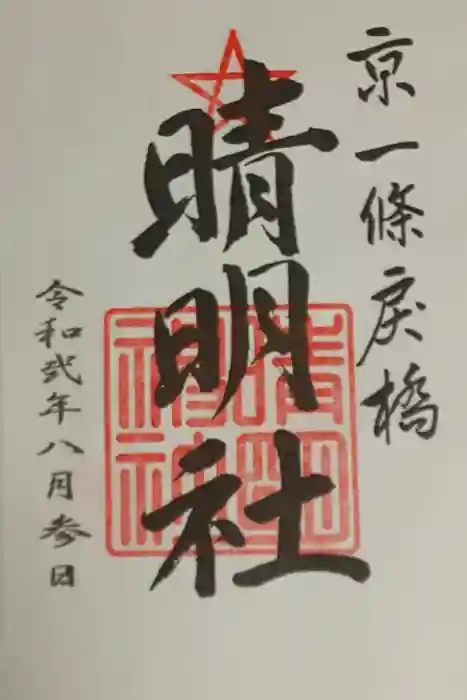 京一條戻橋
晴明社
令和弐年八月参日